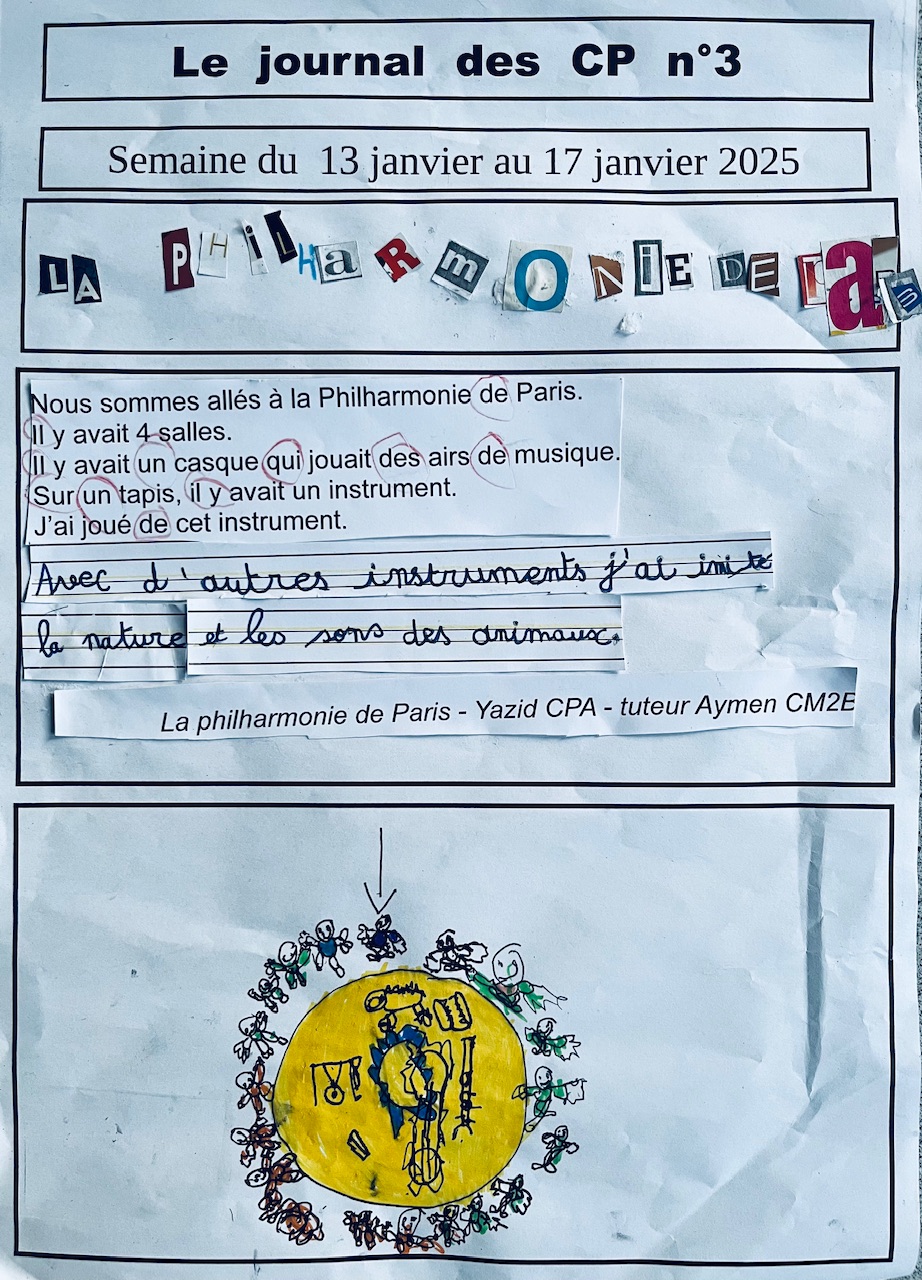 Le journal des CP n°3
Semaine du 13 janvier au 17 janvier 2025
LA PHilHaRmONiE DE
Nous sommes allés à la Philharmonie de Paris.
Il y avait 4 salles.
Il y avait un casque qui jouait des airs de musique.
Sur un tapis, il y avait un instrument.
J'ai joué de cet instrument.
Avec d'autres instruments j'ai imité
la nature et les sons des animaux.
La philharmonie de Paris - Yazid CPA - tuteur Aymen CM2E